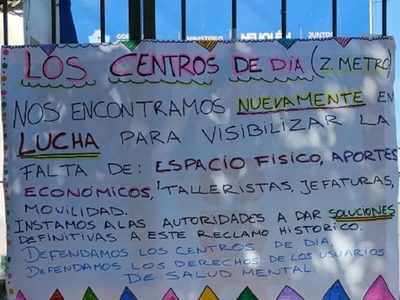 MINISTERIO
NEUQUÉN
JUNTOS
LOS CENTROS DE DÍA (Z. METRO)
NOS ENCONTRAMOS NUEVAMENTE EN
LUCHA PARA VISIBILIZAR LA
FALTA DE: ESPACIO FISICO, APORTES
ECONÓMICOS, TALLERISTAS, JEFATURAS,
MOVILIDAD.
INSTAMOS A LAS AUTORIDADES A DAR SOLUCIONES
DEFINITIVAS A ESTE RECLAMO HISTORICO.
DEFENDAMOS LOS CENTROS DE DIA,
DEFENDAMOS LOS DERECHOS DE LOS USUARIOS
DE SALUD MENTAL.